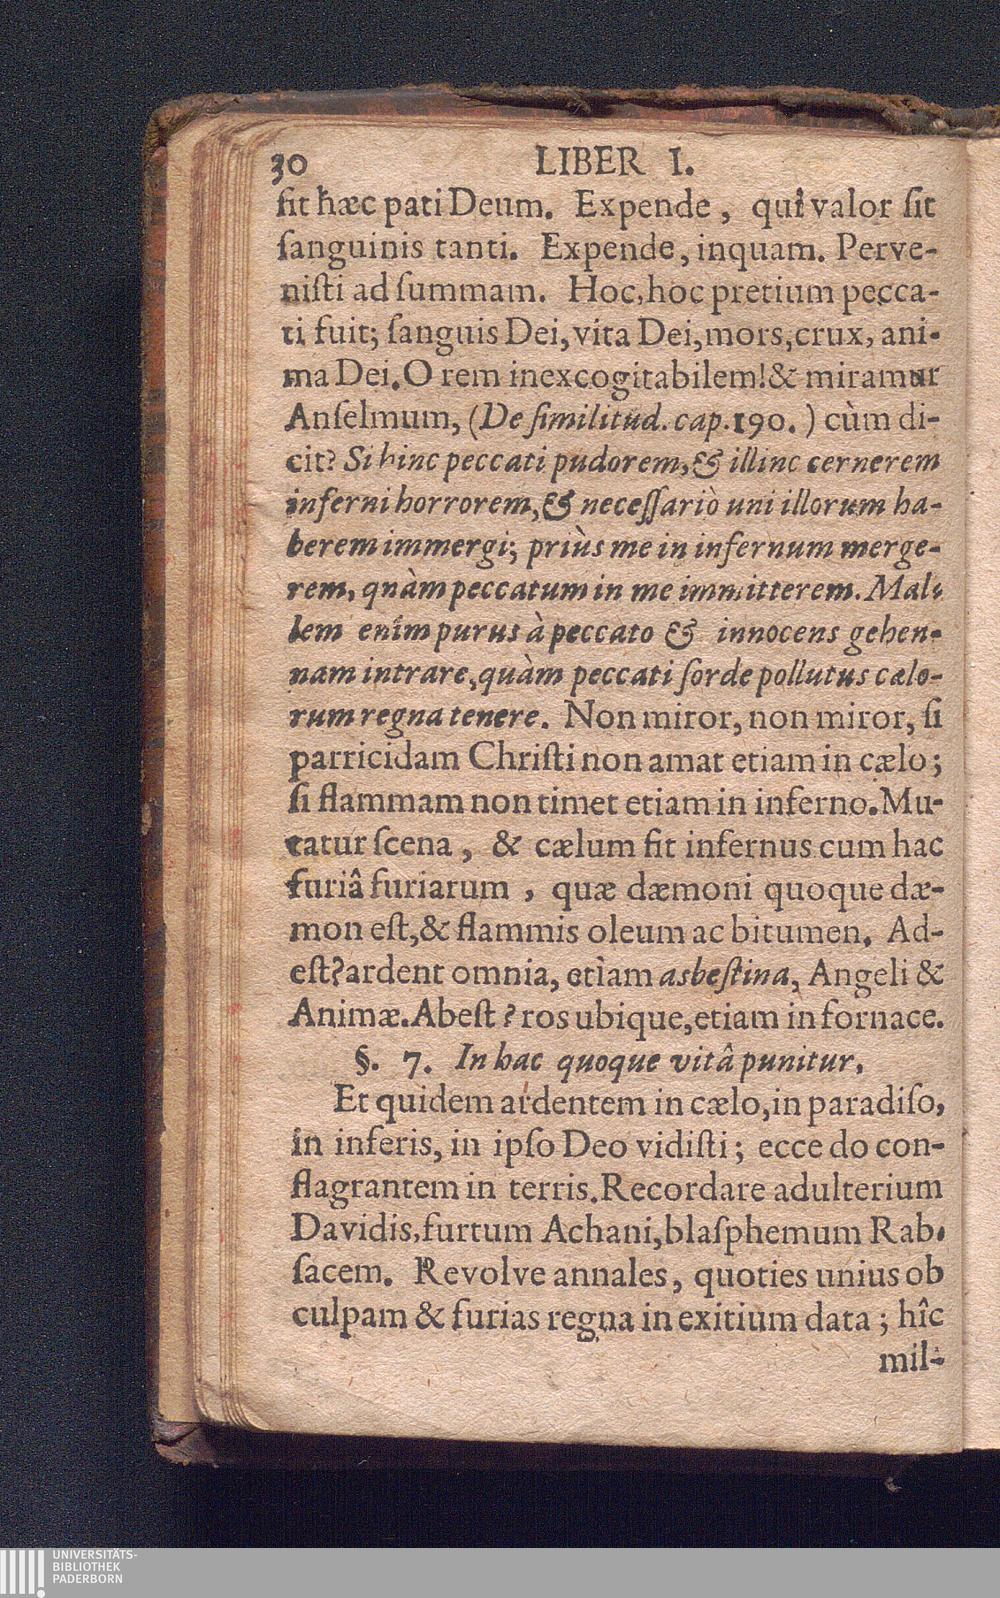 30 LIBER I.
ſit hæc pati Deum. Expende, qui valor ſit
ſanguinis tanti. Expende, inquam. Perve-
niſti ad ſummam. Hoc, hoc pretium pecca-
ti fuit; ſanguis Dei, vita Dei, mors, crux, ani-
ma Dei. O rem inexcogitabilem! & miramur
Anſelmum, (De ſimilitud. cap. 190.) cùm di-
cit? Si hinc peccati pudorem, & illinc cernerem
inferni horrorem, & neceſſariò uni illorum ha-
berem immergi; priùs me in infernum merge-
rem, quàm peccatum in me immitterem. Mal-
lem enim purus à peccato & innocens gehen-
nam intrare, quàm peccati ſorde pollutus cælo-
rum regna tenere. Non miror, non miror, ſi
parricidam Chriſti non amat etiam in cælo;
ſi flammam non timet etiam in inferno. Mu-
tatur ſcena, & cælum fit infernus cum hac
furiâ furiarum, quæ dæmoni quoque dæ-
mon eſt, & flammis oleum ac bitumen. Ad-
eſt? ardent omnia, etiam asbeſtina, Angeli &
Animæ. Abeſt? ros ubique, etiam in fornace.
§. 7. In hac quoque vitâ punitur.
Et quidem ardentem in cælo, in paradiſo,
in inferis, in ipſo Deo vidiſti; ecce do con-
flagrantem in terris. Recordare adulterium
Davidis, furtum Achani, blaſphemum Rab-
ſacem. Revolve annales, quoties unius ob
culpam & furias regna in exitium data; hîc
mil-
UNIVERSITÄTS-
BIBLIOTHEK
PADERBORN